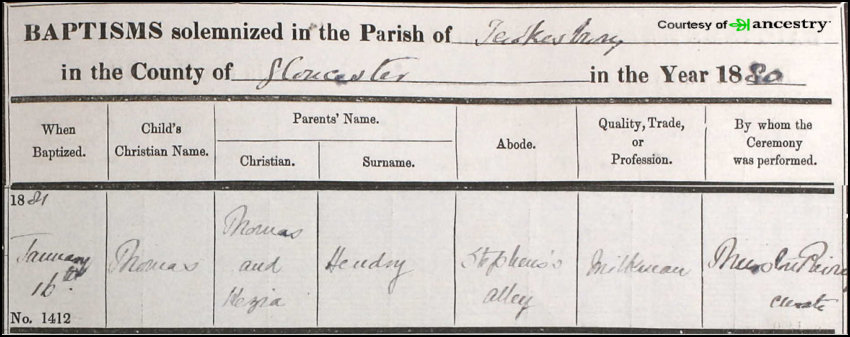 Courtesy of ancestry
BAPTISMS solemnized in the Parish of Tewkesbury
in the County of Gloucester in the Year 1880
When Baptized.
Child's Christian Name.
Parents' Name.
Christian.
Surname.
Abode.
Quality, Trade, or Profession.
By whom the Ceremony was performed.
1881
January 16th
No. 1412
Thomas
Thomas and Kezia
Hendry
Stephens's Alley
Milkman
curate